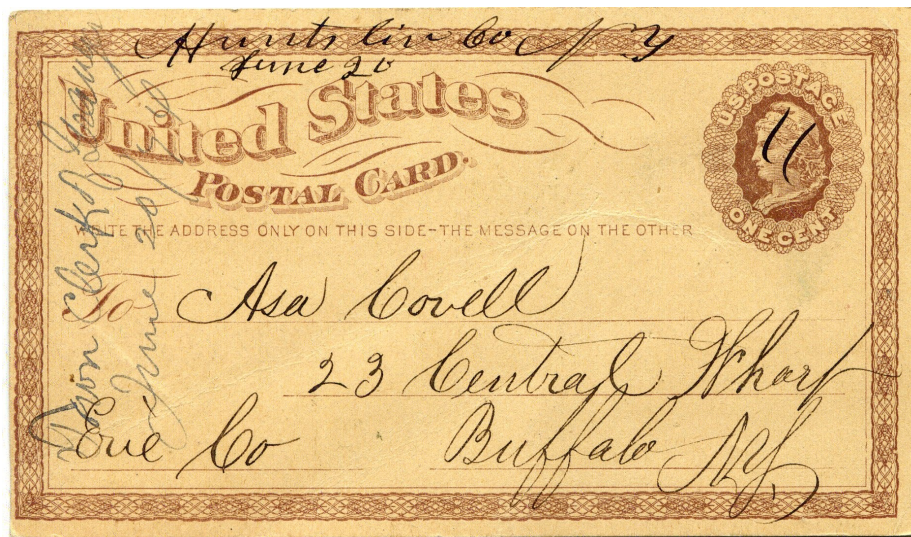 Hunts Co NY
June 20
United States
POSTAL CARD.
U.S. POSTAGE
ONE CENT
WRITE THE ADDRESS ONLY ON THIS SIDE-THE MESSAGE ON THE OTHER
To Asa Covell
23 Central Wharf
Erie Co Buffalo NY
Town Clerk of
June 20